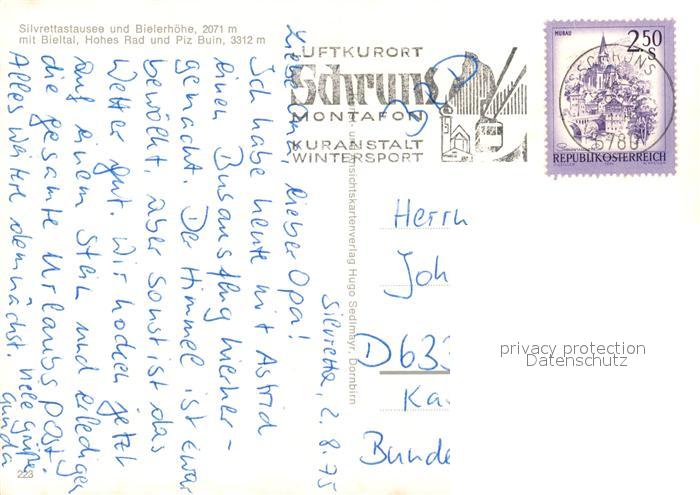 Silvrettastausee und Bielerhöhe, 2071 m
mit Bieltal, Hohes Rad und Piz Buin, 3312 m
LUFTKURORT
Schruns
MONTAFON
KURANSTALT
WINTERSPORT
MURAU
2.50
S
SCHRUNS
6780
REPUBLIK ÖSTERREICH
Silvretta, 2.8.75
Liebe Omi, lieber Opa!
Ich habe heute mit Astrid
einen Busausflug hierher-
gemacht. Der Himmel ist zwar
bewölkt, aber sonst ist das
Wetter gut. Wir hocken jetzt
auf einem Stein und erledigen
die gesamte Urlaubspost.
Alles weitere demnächst. Viele Grüße
Gunda
Ansichtskartenverlag Hugo Sedlmayr, Dornbirn
Herrn
Joh
D 633
Ka
Bunde
privacy protection
Datenschutz
223